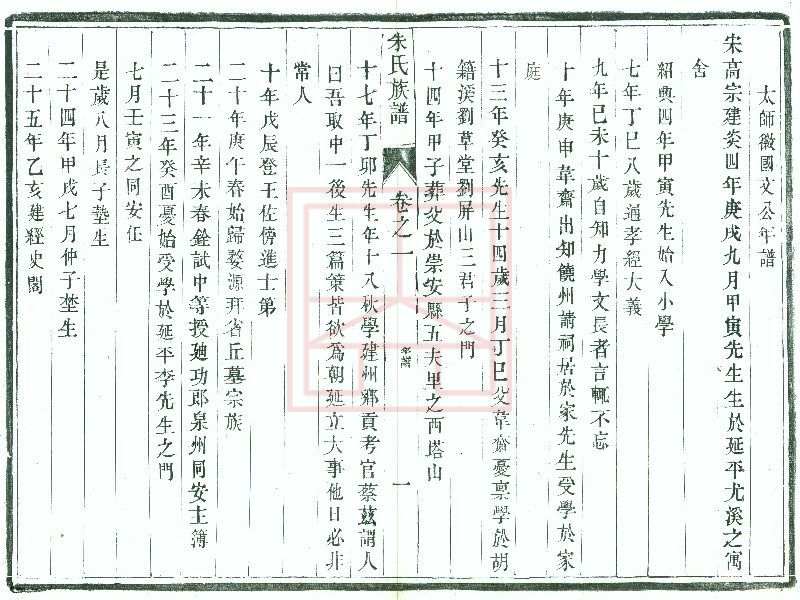 太師徽國文公年譜
宋高宗建炎四年庚戌九月甲寅先生生於延平尤溪之寓
舍
紹興四年甲寅先生始入小學
七年丁巳八歲通孝經大義
九年己未十歲自知力學文長者言輒不忘
十年庚申韋齋出知饒州請祠居於家先生受學於家
庭
十三年癸亥先生十四歲三月丁巳父韋齋憂稟學於胡
籍溪劉草堂劉屏山三君子之門
十四年甲子葬父於崇安縣五夫里之西塔山
朱氏族譜
卷之一
年譜
一
十七年丁邱先生年十八秋學建州鄉貢考官蔡茲謂人
曰吾取中一後生三篇策皆欲為朝廷立大事他日必非
常人
十年戊辰登王佐傍進士第
二十年庚午春始歸婺源拜省丘墓宗族
二十一年辛未春銓試中等授廸功郎泉州同安主簿
二十三年癸酉夏始受學於延平李先生之門
七月壬寅之同安任
是歲八月長子塾生
二十四年甲戌七月仲子埜生
二十五年乙亥建經史閣